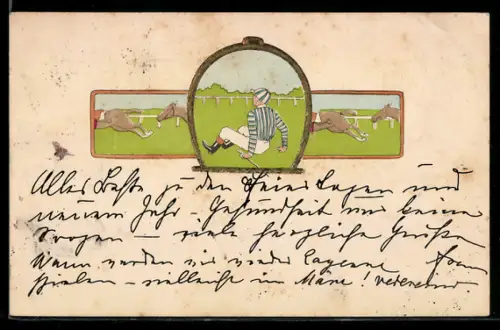 Alles Beste zu den Feiertagen und
neuem Jahr - Gesundheit und keine
Sorgen - viele herzliche Grüße
Wann werden wir wieder
- vielleicht im März!